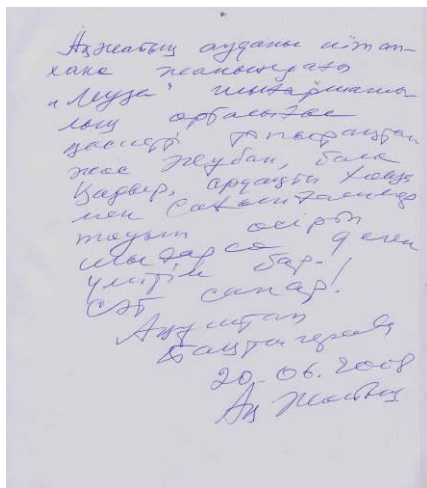 Ақжайық ауданы кітап-
хана жанындағы
"Муза" шығармашы-
лық орталығы
қасиетті топырақтан
жас Жұбан, бала
Қадыр,
мен
тауып өсіріп
шығарса деген
үмітім бар!
Сәт сапар!
Ақұштап
Бақтыгереева
20.06.2008
Ақ Жайық